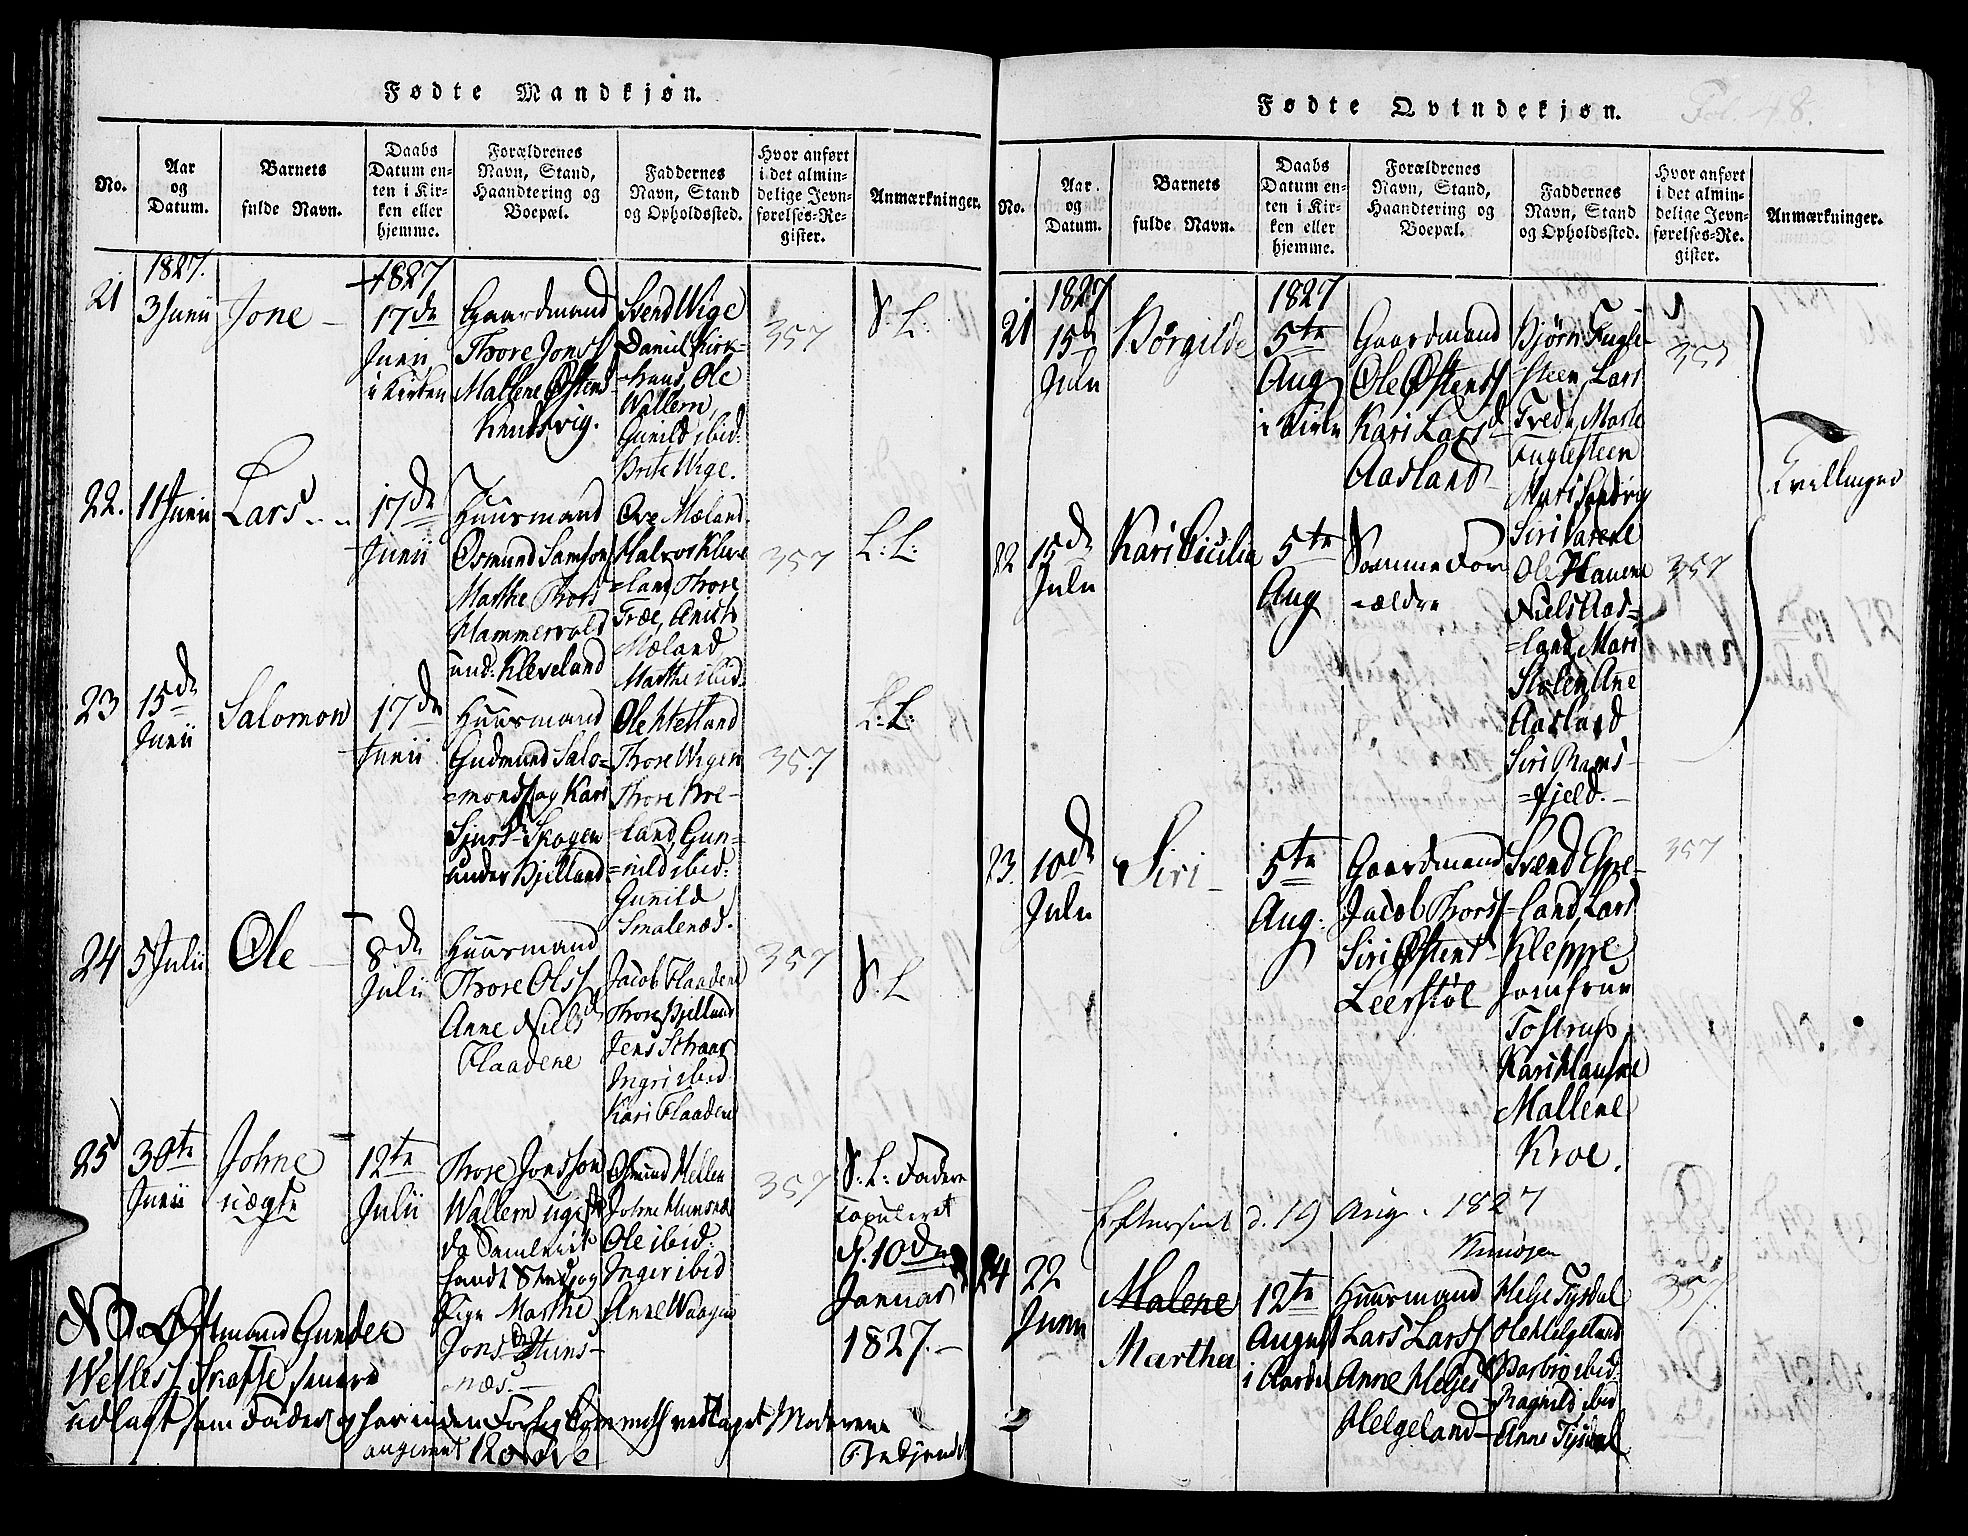 Fødte Mandkjøn.
No.
Aar
og
Datum.
Barnets
fulde Navn.
Daabs
Datum en-
ten i Kir-
ken eller
hjemme.
Forældrenes
Navn, Stand,
Haandtering og
Boepæl.
Faddernes
Navn, Stand
og Opholdssted.
Hvor anført
i det almin-
delige Jevn-
førelses-Re-
gister.
Anmærkninger.
21
1827.
3 Junii
Jone
1827
17de
Junii
i Kirken
Gaardmand
Thore Jons
Mallene Østens
Svend Wige
Daniel Kirk-
huus, Ole
Wallem,
Gunild ibid:
Brite Wige.
357
S: L:
22.
11 Junii
Lars
17de
Junii
Huusmand
Osmund Samson
Marthe Thors
Hammervold
und: Kleveland
Ove Mæland
Halvor Kleve
=land, Thore
Træe,
Mæland
Marthe ibid.
357
L: L:
23
15de
Junii
Salomon
17de
Junii
Huusmand
Gudmund Salo=
=mons og Kari
Sjurs Skogen
under Bjelland
Ole
Thore Wigen
Thore Kroe-
=land, Gun=
=nild ibid:
Gunild
Smalenæs.
357
L: L:
24
5 Julii
Ole
8de
Julii
Huusmand
Thore Ols
Anne Niels
Flaadene
Jacob Flaadene
Thore Bjelland
Jens
Ingri ibid
Kari Flaadene
357
S: L
25
30te
Junii
Johne
uægte
12te
Julii
Thore Jonsson
Wallem ugift
og
Pige Marthe
Jons Huns-
næs.
Osmund Hellen
Johne Hunsnæs
Ole ibid:
Inger ibid
Anne Waagen
357
S: L: Faderen
copuleret
d. 10de
Januar
1827.
NB. Østmand Gunder
udlagt som Fader og har
Moderene
angivent
Fødte Qvindekjøn.
Fol. 48.
No.
Aar.
og
Datum.
Barnets
fulde Navn.
Daabs
Datum en-
ten i Kir-
ken eller
hjemme.
Forældrenes
Navn, Stand,
Haandtering og
Boepæl.
Faddernes
Navn, Stand
og Opholdssted.
Hvor anført
i det almin-
delige Jevn-
førelses-Re-
gister.
Anmærkninger.
21
1827
15de
Julii
Børgilde
1827
5te
Aug
i Kirken
Gaardmand
Ole Østens
Kari Lars
Aasland
Bjørn Fugle-
steen, Lars
Fuglesteen
Siri
357
Tvillinger
22
15de
Julii
Kari Cicilia
5te
Aug
Samme For
=ældre
Ole
Niels Aas=
=land, Mari
Stolen Ane
Aasland
Siri Rams
=fjeld.
357
23.
10de
Julii
Siri
5te
Aug.
Gaardmand
Jacob Thors
Siri Østens
Leerstøl
Svend Espe-
land, Lars
Kleppe
Jomfrue
Tostrup
Kari
Mallene
Kroe.
357
Efterseet d. 19 Aug. 1827
24
22
Junii
Malene
Martha
12te
August
Huusmand
Lars Lars
Anne Helges
Helgeland
Helge Tysdal
Ole Helgeland
Barbro ibid
Ragnild ibid
Anne Tysdal
357.